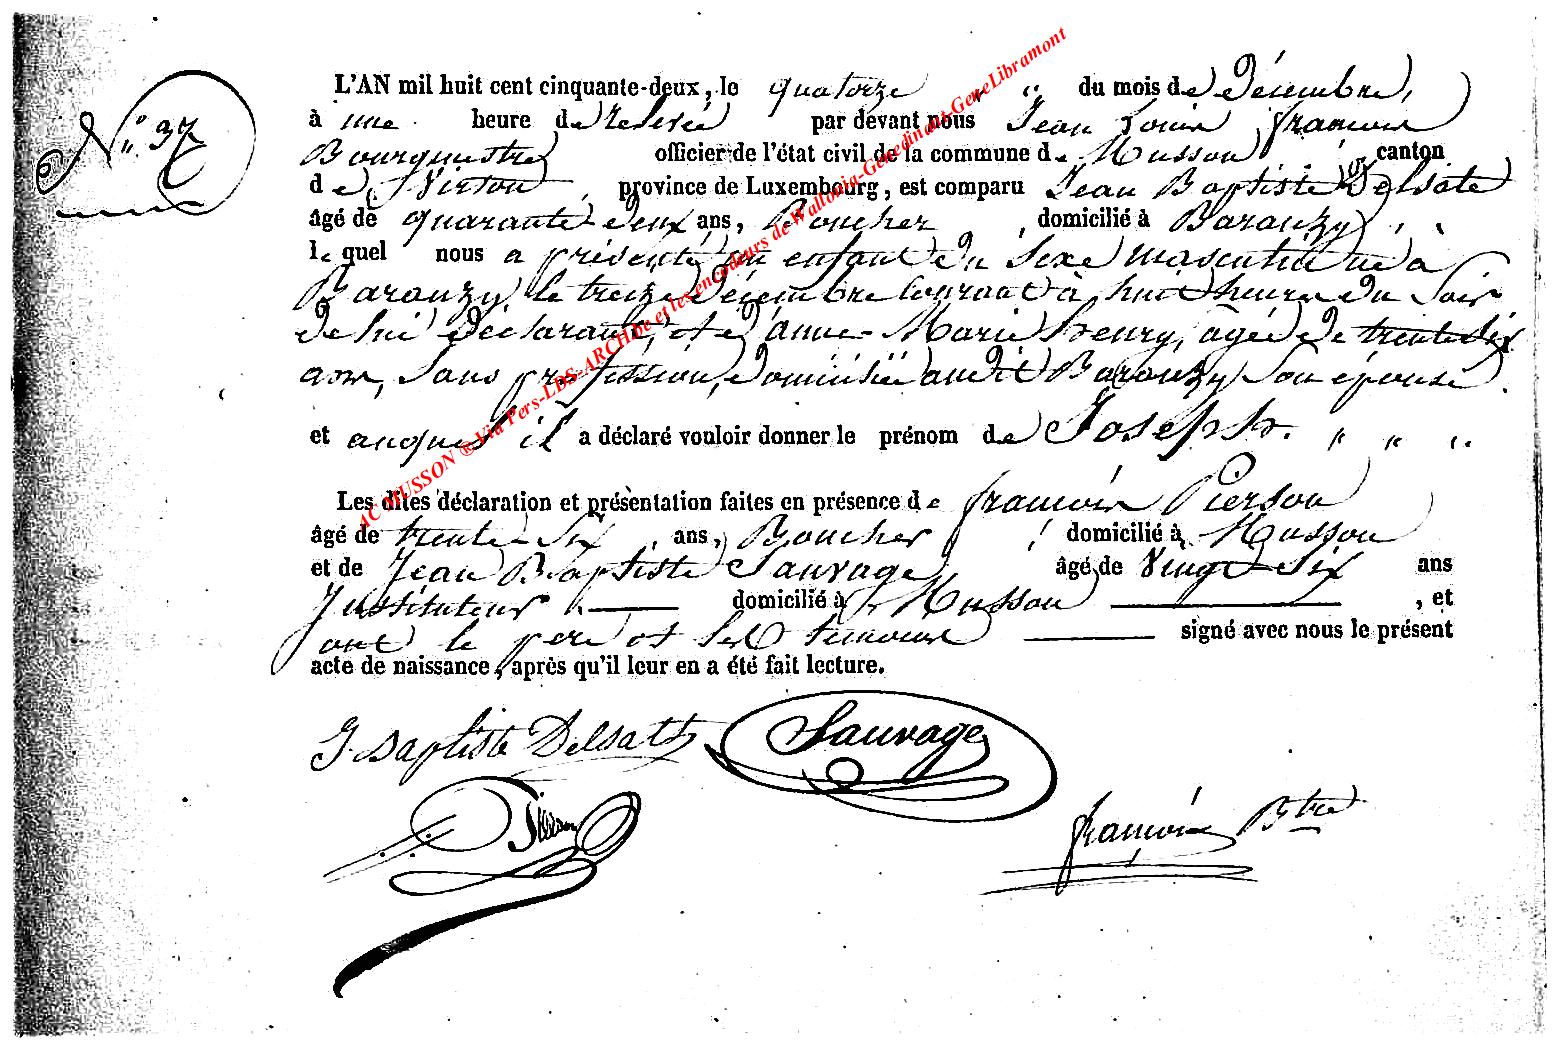 N.° 37
L'AN mil huit cent cinquante-deux, le quatorze " " du mois de Décembre,
à une heure de relevée par devant nous Jean Louis françois
Bourguestre officier de l'état civil de la commune de Musson, canton
de Virton, province de Luxembourg, est comparu Jean Baptiste Delsate
âgé de quarante deux ans, Boucher, domicilié à Baranzy,
lequel nous a présenté un enfant du sexe masculin né à
Baranzy le treize Décembre courant à huit heures du soir
de lui déclarant, et d'anne-Marie henry, âgée de trente six
ans, sans profession, domiciliée audit Baranzy son épouse.
et auquel il a déclaré vouloir donner le prénom de Joseph. " " "
Les dites déclaration et présentation faites en présence de françois Pierson
âgé de trente-six ans, Boucher, domicilié à Musson
et de Jean Baptiste Sauvage, âgé de vingt-six ans
Instituteur domicilié à Musson , et
ont le père et les témoins signé avec nous le présent
acte de naissance, après qu'il leur en a été fait lecture.
J. Baptiste Delsatt Sauvage
Pierson
françois Btre
AC MUSSON ® Via Pers-LDS-ARCHbe et les encodeurs de Wallonia-Genedinant-GeneLibramont